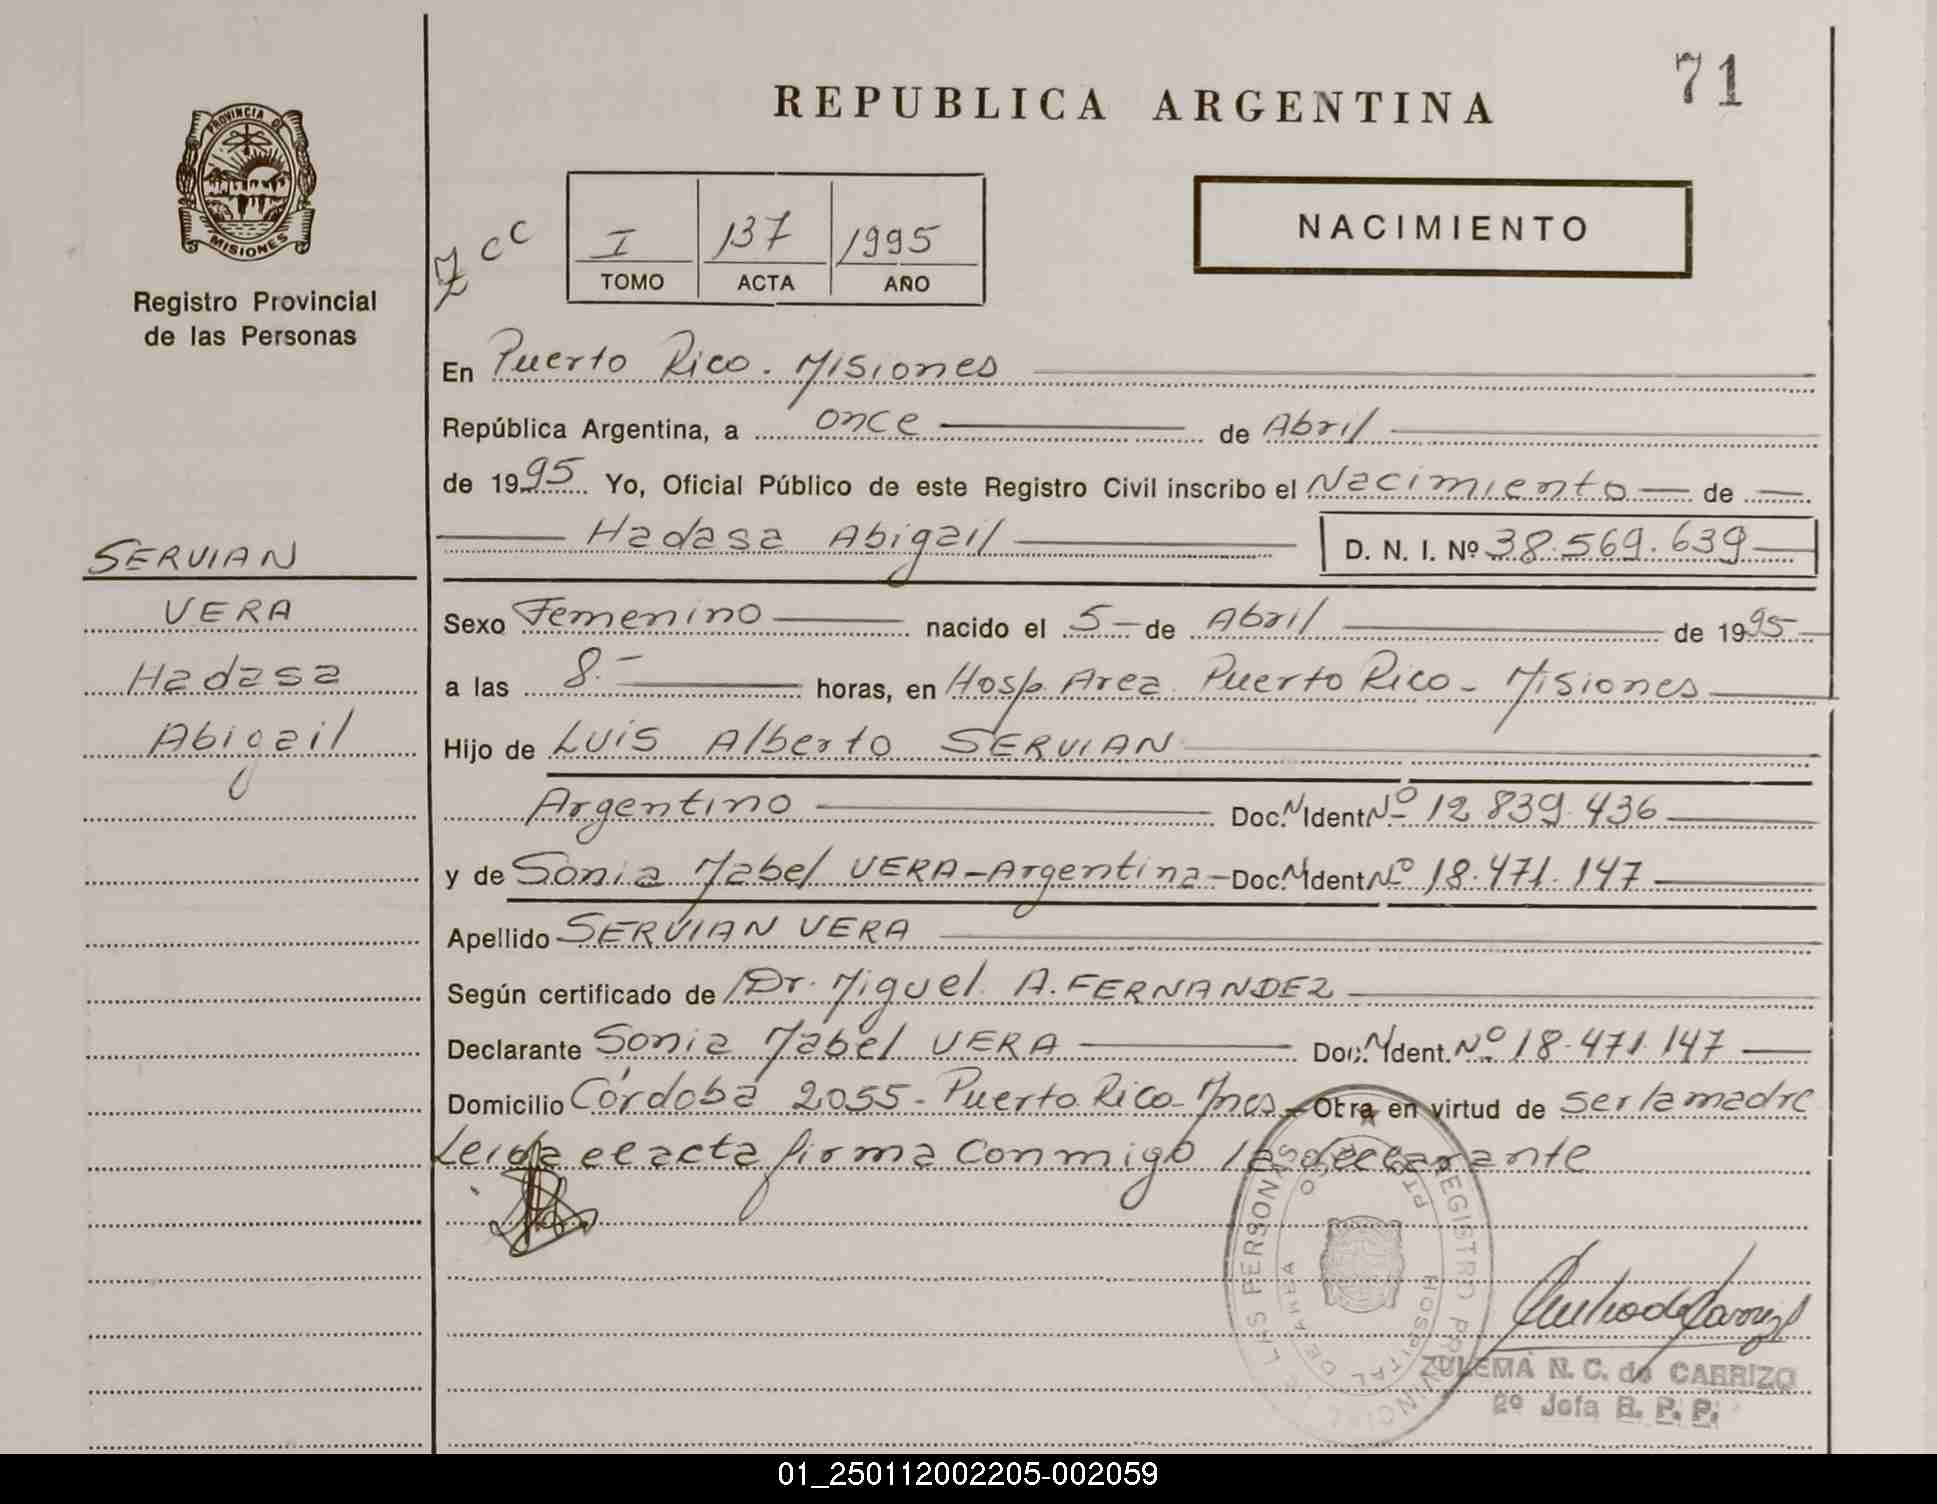 71
REPUBLICA ARGENTINA
PROVINCIA DE
MISIONES
Registro Provincial
de las Personas
cc
I 137 1995
TOMO ACTA AÑO
NACIMIENTO
En Puerto Rico. Misiones
República Argentina, a once de Abril
de 1995 Yo, Oficial Público de este Registro Civil inscribo el Nacimiento de
Hadasa Abigail D. N. I. Nº 38.569.639
SERVIAN
VERA
Hadasa
Abigail
Sexo Femenino nacido el 5 de Abril de 1995
a las 8.- horas, en Hosp. Area Puerto Rico - Misiones
Hijo de Luis Alberto SERVIAN
Argentino Doc. N. Ident Nº 12.839.436
y de Sonia Mabel VERA - Argentina - Doc. N. Ident Nº 18.471.147
Apellido SERVIAN VERA
Según certificado de Dr. Miguel A. FERNANDEZ
Declarante Sonia Mabel VERA Doc. N. Ident. Nº 18.471.147
Domicilio Córdoba 2055 - Puerto Rico - Mnes - Obra en virtud de ser la madre
Leida el acta firma conmigo la declarante
REGISTRO PROVINCIAL DE LAS PERSONAS
HOSPITAL DE AREA PTO RICO
ZULEMA N. C. de CARRIZO
2º Jefa R. P. P.
01_250112002205-002059